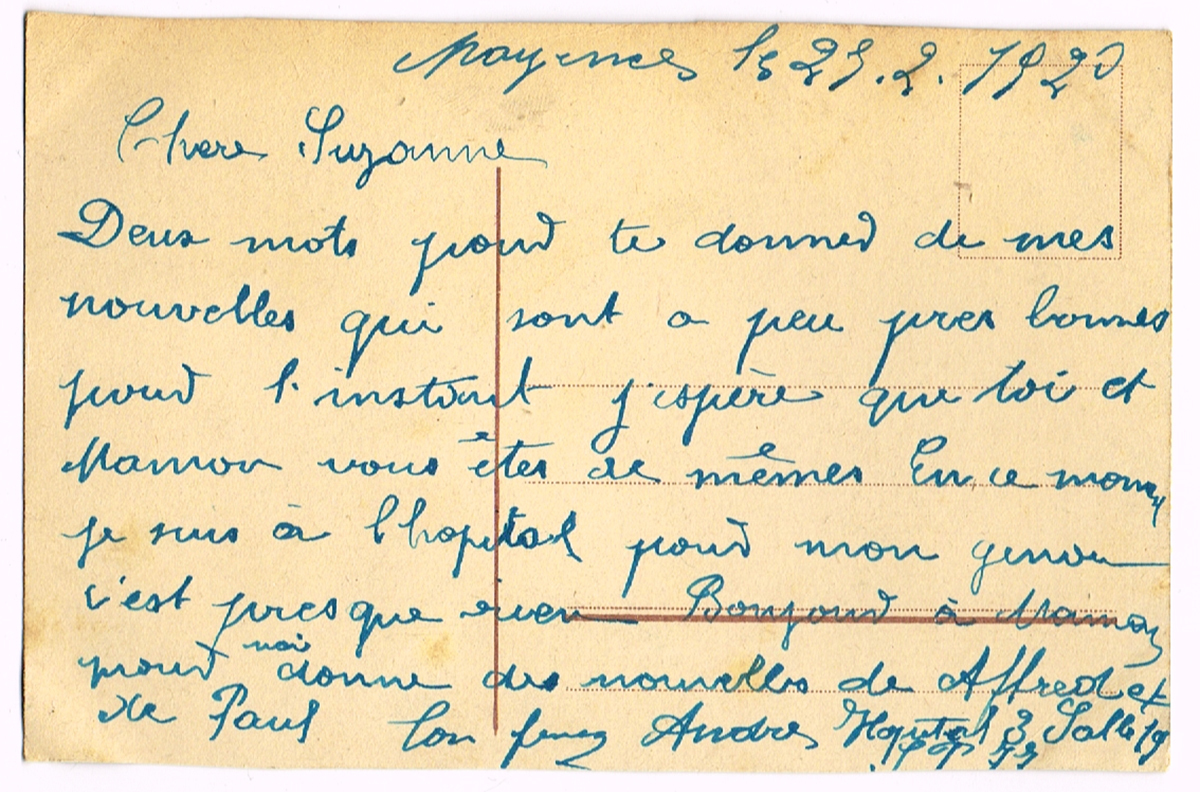 Mayence le 25.2.1920
Chere Suzanne
Deux mots pour te donner de mes
nouvelles qui sont a peu pres bonnes
pour l'instant j'espère que toi et
Maman vous êtes de mêmes En ce mom
je suis à l'hopital pour mon genou
c'est presque rien Bonjour à Maman
pour moi donne des nouvelles de Alfred et
de Paul Ton André Hopital 3 Salle 19